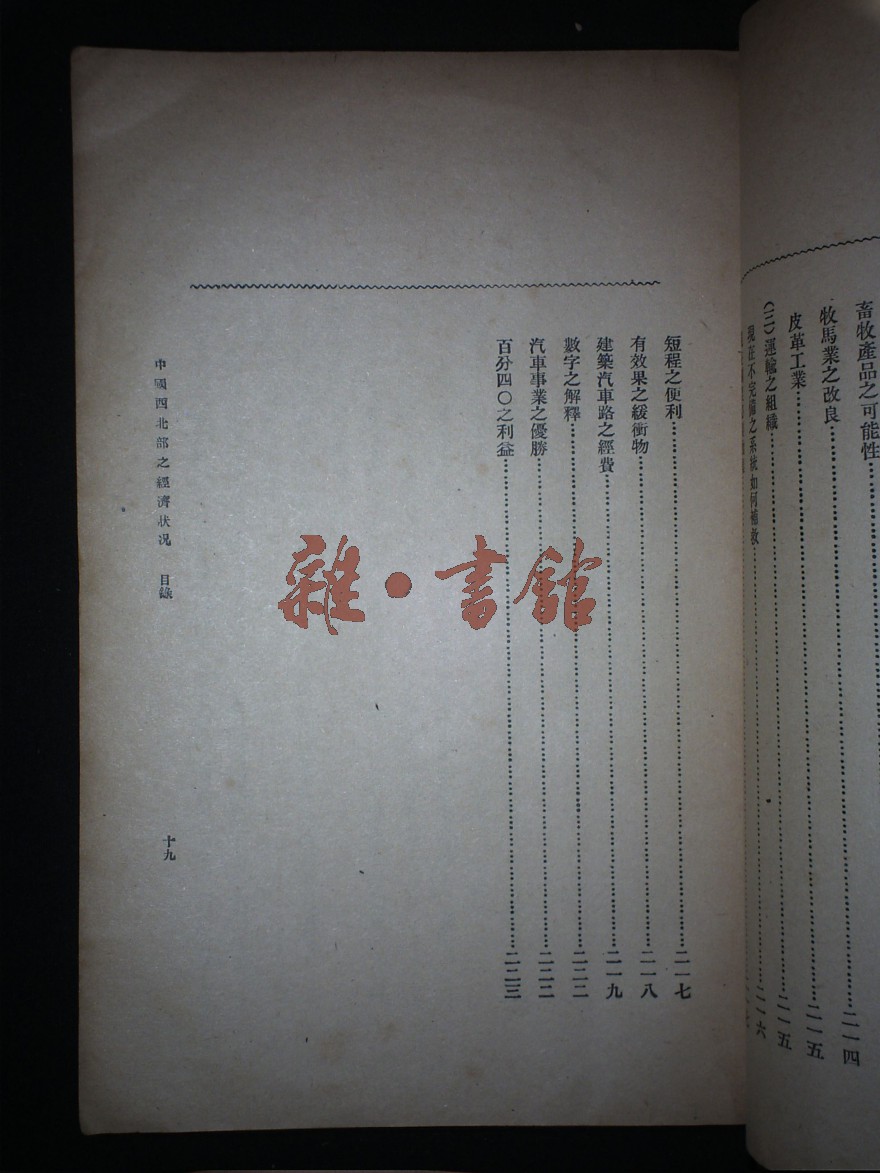 畜牧產品之可能性……二一四
牧馬業之改良……二一五
皮革工業……二一五
(三)運輸之組織……二一六
現在不完備之系統如何補救
短程之便利……二一七
有效果之緩衝物……二一八
建築汽車路之經費……二一九
數字之解釋……二二二
汽車事業之優勝……二二二
百分四〇之利益……二二三
中國西北部之經濟狀况 目錄
十九
雜·書館